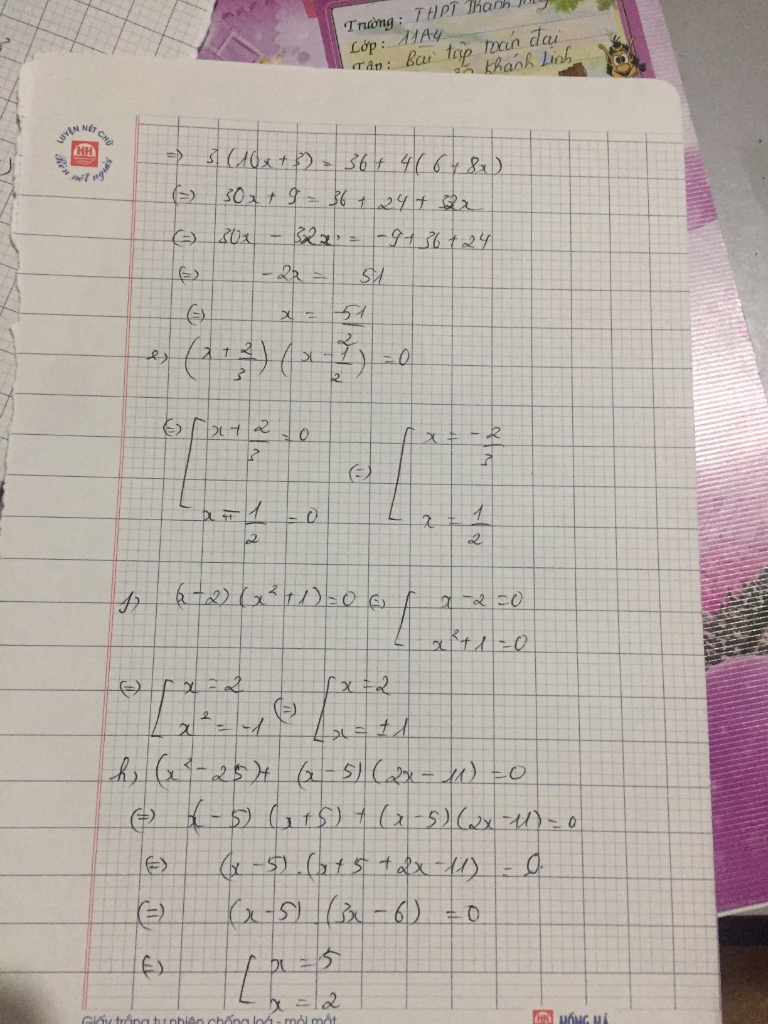 Trường: THPT Thanh
Lớp: 11A4
Tập: Bài tập toán đại
Khánh Linh
LUYỆN NÉT CHỮ
HH
Rèn nết người
=> 3.(10x+3) = 36 + 4(6+8x)
(=) 30x + 9 = 36 + 24 + 32x
(=) 30x - 32x = -9+36+24
(=) -2x = 51
(=) x = -51/2
e, (x + 2/3) (x - 1/2) = 0
(=) [ x + 2/3 = 0 (=) [ x = -2/3
x - 1/2 = 0 x = 1/2
f, (x-2)(x²+1)=0 (=) [ x-2=0
x²+1=0
(=) [ x = 2 (=) [ x = 2
x² = -1 x = ±1
h, (x²-25)+ (x-5)(2x-11) = 0
(=) x(-5) (x+5) + (x-5)(2x-11)=0
(=) (x-5).(x+5+2x-11) = 0
(=) (x-5).(3x-6) = 0
(=) [ x = 5
x = 2
Giấy trắng tự nhiên chống loá - mỏi mắt
HH HỒNG HÀ